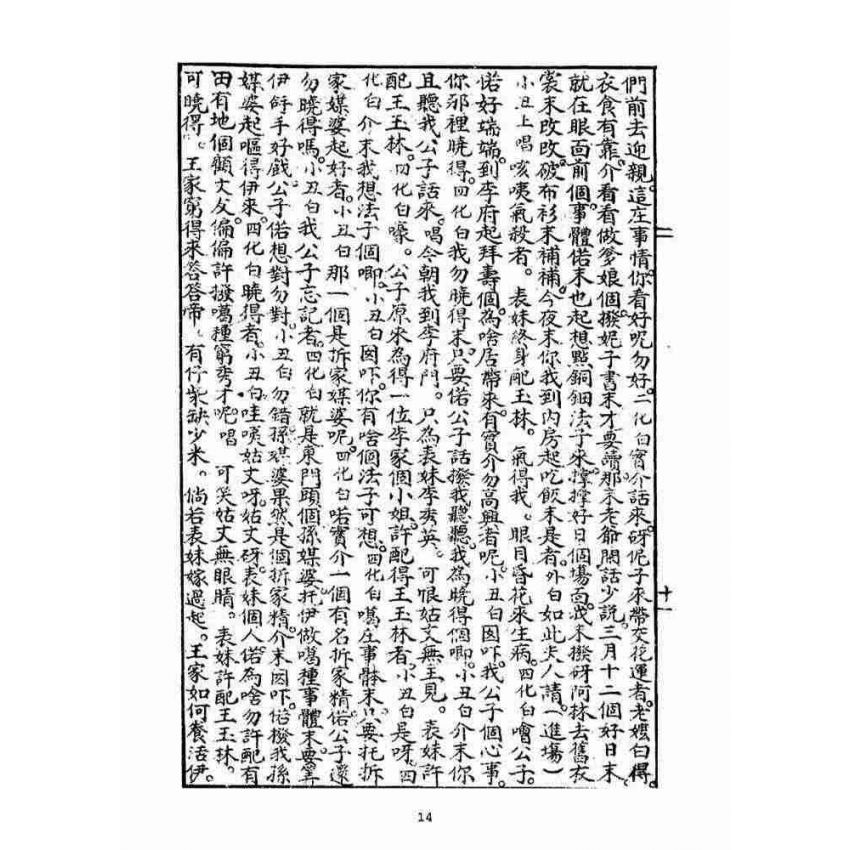 們前去迎親。這庄事情。你看好呢勿好。二化白實介話來。砑伲子來帶交花運者。老嬤白得。
衣食有靠。介看看做爹娘個。撥妮子書末才要讀。那末老爺閑話少說。三月十二個好日末。
就在眼面前個。事體偌末也起想點銅鈿法子來。撐撐好日個場面。我末撥砑阿林去舊衣
裳末改改。破布衫末補補。今夜末你我到內房起吃飯末是者。外白如此夫人請。(進場)
小丑上唱 咳咦氣殺者。表妹終身配玉林。氣得我。眼目昏花來生病。四化白嗆公子。
偌好端端。到李府起拜壽個。為啥居帶來。有實介勿高興者呢。小丑白因吓。我公子個心事。
你那裡曉得。四化白我勿曉得末。只要偌公子話撥我聽聽。我為曉得個唧。小丑白介末你
且聽我公子話來。唱今朝我到李府門。只為表妹李秀英。可恨姑丈無主見。表妹許
配王玉林。四化白嚎。公子原來為得一位李家個小姐。許配得王玉林者。小丑白是呀。四
化白介末我想法子個唧。小丑白因吓。你有啥個法子可想。四化白噶庄事體末。只要托拆
家媒婆起好者。小丑白那一個是拆家媒婆呢。四化白喏實介一個有名拆家精。偌公子還
勿曉得嗎。小丑白我公子忘記者。四化白就是東門頭個孫媒婆。托伊做噶種事體末。要算
伊好手好戲。公子偌想對勿對。小丑白勿錯。孫媒婆果然是個拆家精。介末因吓。偌撥我孫
媒婆起嘔得伊來。四化白曉得者。小丑白哇唉姑丈呀。姑丈砑。表妹個人。偌為啥勿許配有
田有地個顧文友。偏偏許撥噶種窮鬼才呢。唱 可笑姑丈無眼睛。表妹許配王玉林。
可曉得。王家窮得來答答啼。有仔柴缺少米。倘若表妹嫁過起。王家如何養活伊。
二
十一
14